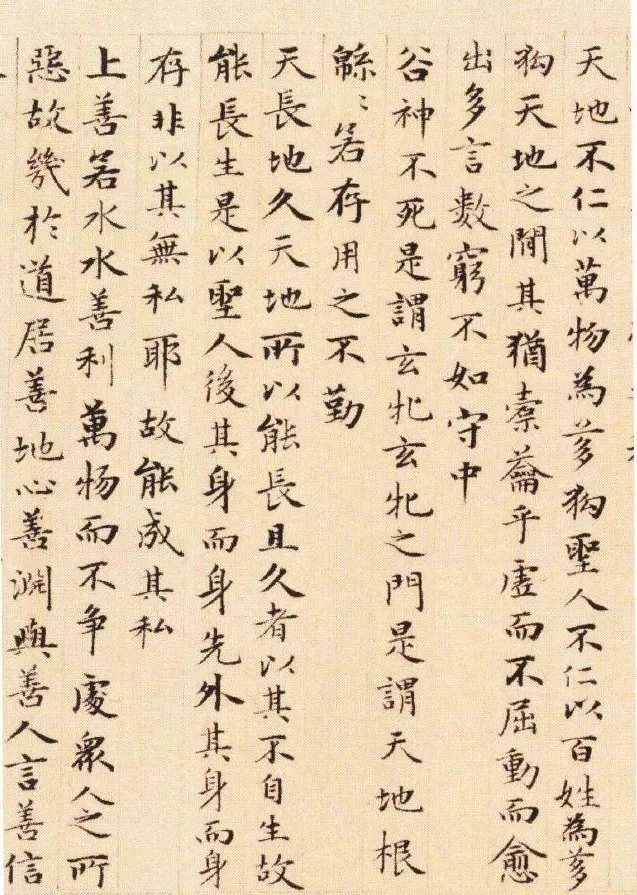 天地不仁以萬物為芻狗聖人不仁以百姓為芻
狗天地之間其猶橐籥乎虛而不屈動而愈
出多言數窮不如守中
谷神不死是謂玄牝玄牝之門是謂天地根
綿〻若存用之不勤
天長地久天地所以能長且久者以其不自生故
能長生是以聖人後其身而身先外其身而身
存非以其無私耶故能成其私
上善若水水善利萬物而不争處衆人之所
惡故幾於道居善地心善淵與善人言善信